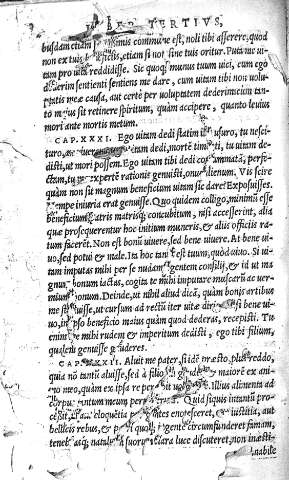 TERTIVS,
busdam etiam commune est, noli tibi asserere, quod
non ex tuis etiam si non sine tuis oritur. Puta me ui-
tam pro uita reddidisse. Sic quoq; munus tuum uici, cum ego
sentienti me dare, cum uitam tibi non uolu-
ptatis meæ causa, aut certè per uoluptatem dederim: cum tan-
to sit retinere spiritum, quàm accipere, quanto leuius
mori ante mortis metum.
CAP. XXXI. Ego uitam dedi statim usuro, tu nesci-
turo, an dedi, mortē timēti, tu uitam de-
disti, ut mori possem. Ego uitam tibi dedi perfe-
ctam, tu expertē rationis genuisti, onus alienum. Vis scire
quàm non sit magnum beneficium uitam sic dare? Exposuisses.
Nempe iniuria erat genuisse. Quo quidem colligo, minimū esse
beneficium patris matrisq; concubitum, nisi accesserint, alia
quæ prosequerentur hoc initium muneris, & alijs officijs ra-
tum facerēt. Non est bonū uiuere, sed bene uiuere. At bene ui-
uo, sed potui & malè. Ita hoc tantū est tuum, quòd uiuo. Si ui-
tam imputas mihi per se nudam, egentem consilij, & id ut ma-
gnum bonum iactas, cogita te mihi imputare muscarū ac ver-
mium bonum. Deinde, ut nihil aliud dicā, quàm bonis artibus
me ut cursum ad rectū iter uitæ si bene ui-
uo, in ipso beneficio maius quàm quod dederas, recepisti. Tu
enim me mihi rudem & imperitum dedisti, ego tibi filium,
qualem genuisse gauderes.
CAP. XXXII. Aluit me pater, si idē præsto, plus reddo,
quia nō tantū ali se, sed à filio ali gaudet, & maiorē ex ani-
mo meo, quàm ex ipsa re percipit Illius alimenta ad
corpus tantum meum Quid siquis intantū pro-
cessit, ut aut eloquētia gentes enotesceret, & iustitia, aut
bellicis rebus, & patri quoq; ingentē circumfunderet famam,
tenebrasq; natalium suorum clara luce discuteret, non inæsti-
mabile